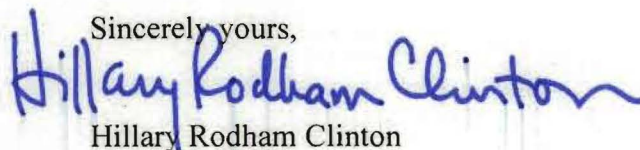 Sincerely yours,
Hillary Rodham Clinton
Hillary Rodham Clinton